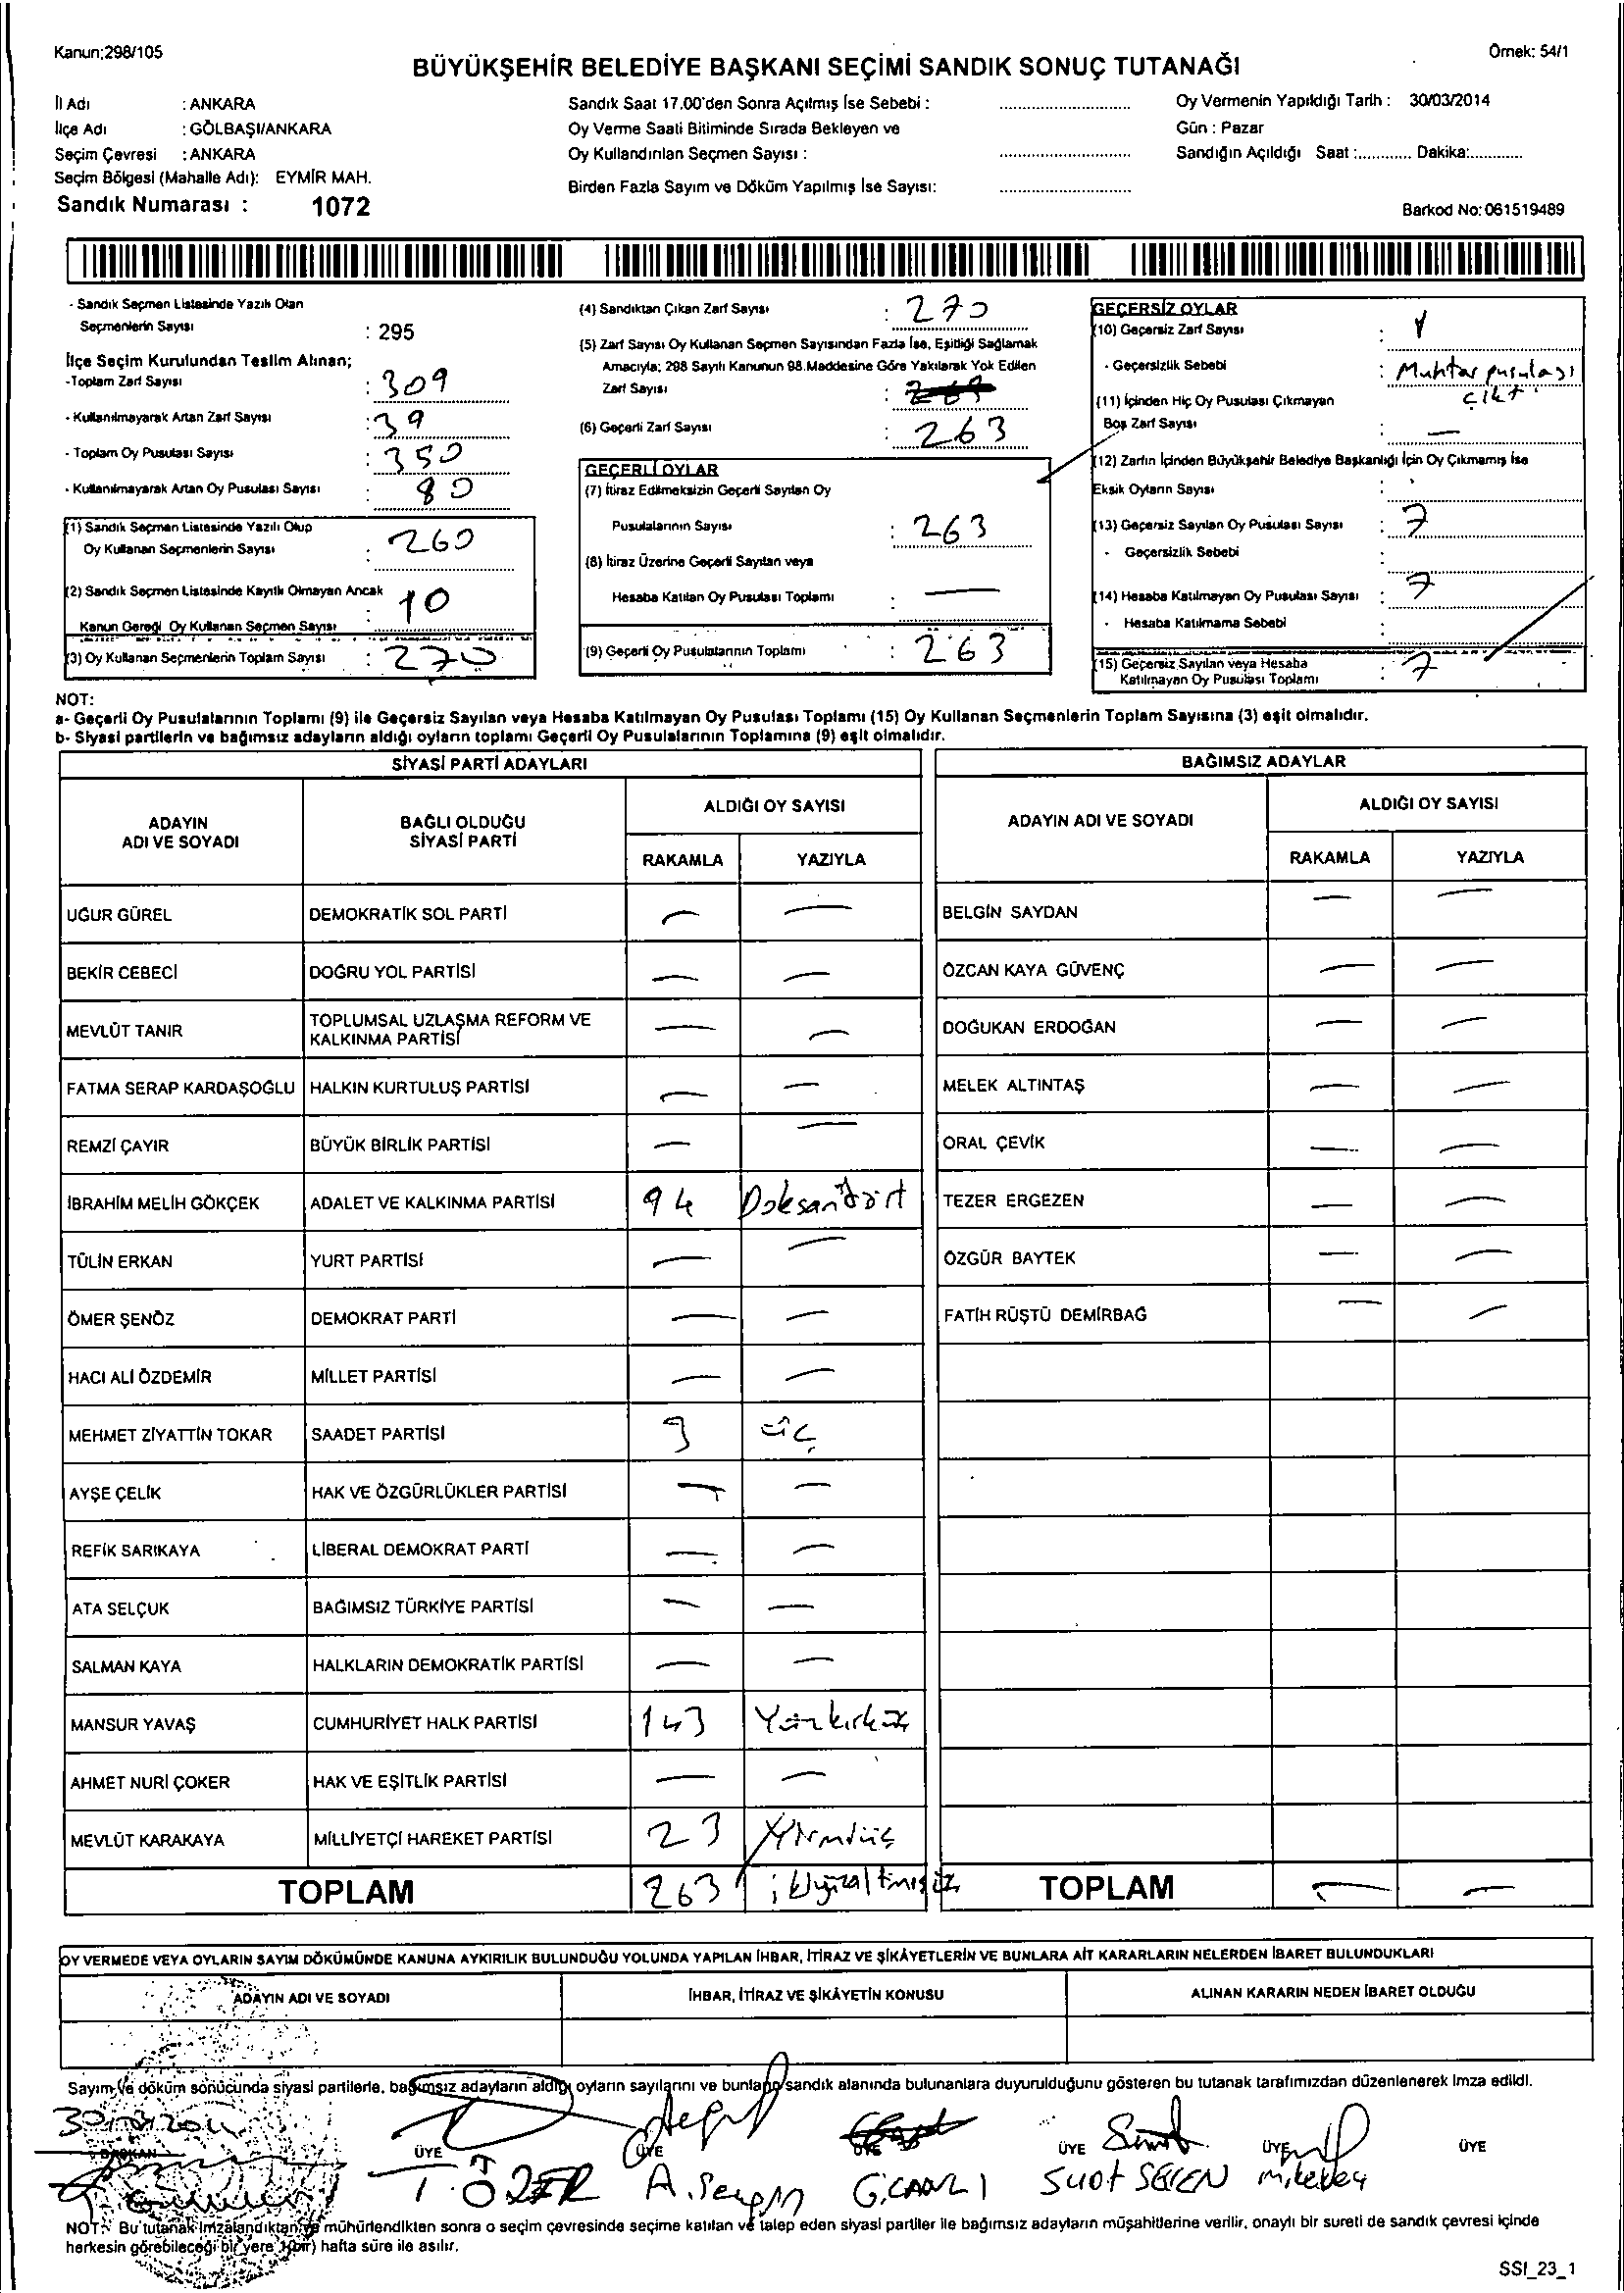 Kanun;298/105
Örnek: 54/1
BÜYÜKŞEHİR BELEDİYE BAŞKANI SEÇİMİ SANDIK SONUÇ TUTANAĞI
İl Adı : ANKARA
İlçe Adı : GÖLBAŞI/ANKARA
Seçim Çevresi : ANKARA
Seçim Bölgesi (Mahalle Adı): EYMİR MAH.
Sandık Numarası : 1072
Sandık Saat 17.00'den Sonra Açılmış İse Sebebi :
Oy Verme Saati Bitiminde Sırada Bekleyen ve
Oy Kullandırılan Seçmen Sayısı :
Birden Fazla Sayım ve Döküm Yapılmış İse Sayısı:
Oy Vermenin Yapıldığı Tarih : 30/03/2014
Gün : Pazar
Sandığın Açıldığı Saat :............ Dakika:............
Barkod No: 061519489
- Sandık Seçmen Listesinde Yazılı Olan
Seçmenlerin Sayısı : 295
İlçe Seçim Kurulundan Teslim Alınan;
-Toplam Zarf Sayısı : 309
- Kullanılmayarak Artan Zarf Sayısı : 39
- Toplam Oy Pusulası Sayısı : 350
- Kullanılmayarak Artan Oy Pusulası Sayısı : 80
(1) Sandık Seçmen Listesinde Yazılı Olup
Oy Kullanan Seçmenlerin Sayısı : 260
(2) Sandık Seçmen Listesinde Kayıtlı Olmayan Ancak
Kanun Gereği Oy Kullanan Seçmen Sayısı : 10
(3) Oy Kullanan Seçmenlerin Toplam Sayısı : 270
(4) Sandıktan Çıkan Zarf Sayısı : 270
(5) Zarf Sayısı Oy Kullanan Seçmen Sayısından Fazla İse, Eşitliği Sağlamak
Amacıyla; 298 Sayılı Kanunun 98.Maddesine Göre Yakılarak Yok Edilen
Zarf Sayısı :
(6) Geçerli Zarf Sayısı : 263
GEÇERLİ OYLAR
(7) İtiraz Edilmeksizin Geçerli Sayılan Oy
Pusulalarının Sayısı : 263
(8) İtiraz Üzerine Geçerli Sayılan veya
Hesaba Katılan Oy Pusulası Toplamı : —
(9) Geçerli Oy Pusulalarının Toplamı : 263
GEÇERSİZ OYLAR
(10) Geçersiz Zarf Sayısı :
- Geçersizlik Sebebi : Muhtar pusulası
çıktı
(11) İçinden Hiç Oy Pusulası Çıkmayan
Boş Zarf Sayısı : —
(12) Zarfın İçinden Büyükşehir Belediye Başkanlığı İçin Oy Çıkmamış İse
Eksik Oyların Sayısı :
(13) Geçersiz Sayılan Oy Pusulası Sayısı : 7
- Geçersizlik Sebebi :
(14) Hesaba Katılmayan Oy Pusulası Sayısı : 7
- Hesaba Katılmama Sebebi :
(15) Geçersiz Sayılan veya Hesaba
Katılmayan Oy Pusulası Toplamı : 7
NOT:
a- Geçerli Oy Pusulalarının Toplamı (9) ile Geçersiz Sayılan veya Hesaba Katılmayan Oy Pusulası Toplamı (15) Oy Kullanan Seçmenlerin Toplam Sayısına (3) eşit olmalıdır.
b- Siyasi partilerin ve bağımsız adayların aldığı oyların toplamı Geçerli Oy Pusulalarının Toplamına (9) eşit olmalıdır.
SİYASİ PARTİ ADAYLARI
ADAYIN
ADI VE SOYADI
BAĞLI OLDUĞU
SİYASİ PARTİ
ALDIĞI OY SAYISI
RAKAMLA YAZIYLA
UĞUR GÜREL DEMOKRATİK SOL PARTİ — —
BEKİR CEBECİ DOĞRU YOL PARTİSİ — —
MEVLÜT TANIR TOPLUMSAL UZLAŞMA REFORM VE
KALKINMA PARTİSİ — —
FATMA SERAP KARDAŞOĞLU HALKIN KURTULUŞ PARTİSİ — —
REMZİ ÇAYIR BÜYÜK BİRLİK PARTİSİ — —
İBRAHİM MELİH GÖKÇEK ADALET VE KALKINMA PARTİSİ 94 Doksandört
TÜLİN ERKAN YURT PARTİSİ — —
ÖMER ŞENÖZ DEMOKRAT PARTİ — —
HACI ALİ ÖZDEMİR MİLLET PARTİSİ — —
MEHMET ZİYATTİN TOKAR SAADET PARTİSİ 3 üç
AYŞE ÇELİK HAK VE ÖZGÜRLÜKLER PARTİSİ — —
REFİK SARIKAYA LİBERAL DEMOKRAT PARTİ — —
ATA SELÇUK BAĞIMSIZ TÜRKİYE PARTİSİ — —
SALMAN KAYA HALKLARIN DEMOKRATİK PARTİSİ — —
MANSUR YAVAŞ CUMHURİYET HALK PARTİSİ 143 Yüzkırküç
AHMET NURİ ÇOKER HAK VE EŞİTLİK PARTİSİ — —
MEVLÜT KARAKAYA MİLLİYETÇİ HAREKET PARTİSİ 23 Yirmiüç
TOPLAM 263 ikiyüzaltmışüç
BAĞIMSIZ ADAYLAR
ADAYIN ADI VE SOYADI
ALDIĞI OY SAYISI
RAKAMLA YAZIYLA
BELGİN SAYDAN — —
ÖZCAN KAYA GÜVENÇ — —
DOĞUKAN ERDOĞAN — —
MELEK ALTINTAŞ — —
ORAL ÇEVİK — —
TEZER ERGEZEN — —
ÖZGÜR BAYTEK — —
FATİH RÜŞTÜ DEMİRBAĞ — —
TOPLAM — —
OY VERMEDE VEYA OYLARIN SAYIM DÖKÜMÜNDE KANUNA AYKIRILIK BULUNDUĞU YOLUNDA YAPILAN İHBAR, İTİRAZ VE ŞİKÂYETLERİN VE BUNLARA AİT KARARLARIN NELERDEN İBARET BULUNDUKLARI
ADAYIN ADI VE SOYADI
İHBAR, İTİRAZ VE ŞİKÂYETİN KONUSU
ALINAN KARARIN NEDEN İBARET OLDUĞU
Sayım ve döküm sonucunda siyasi partilerle, bağımsız adayların aldığı oyların sayılarını ve bunların sandık alanında bulunanlara duyurulduğunu gösteren bu tutanak tarafımızdan düzenlenerek imza edildi.
BAŞKAN ÜYE ÜYE ÜYE ÜYE ÜYE ÜYE
T. ÖZER
NOT: Bu tutanak imzalandıktan ve mühürlendikten sonra o seçim çevresinde seçime katılan ve talep eden siyasi partiler ile bağımsız adayların müşahitlerine verilir, onaylı bir sureti de sandık çevresi içinde
herkesin görebileceği bir yere 1(bir) hafta süre ile asılır.
SSI_23_1